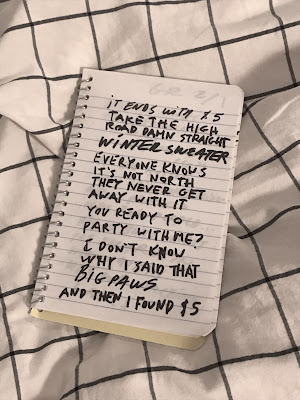 IT ENDS WITH $5
TAKE THE HIGH
ROAD DAMN STRAIGHT
WINTER SWEATER
EVERYONE KNOWS
IT'S NOT NORTH
THEY NEVER GET
AWAY WITH IT
YOU READY TO
PARTY WITH ME?
I DON'T KNOW
WHY I SAID THAT
BIG PAWS
AND THEN I FOUND $5